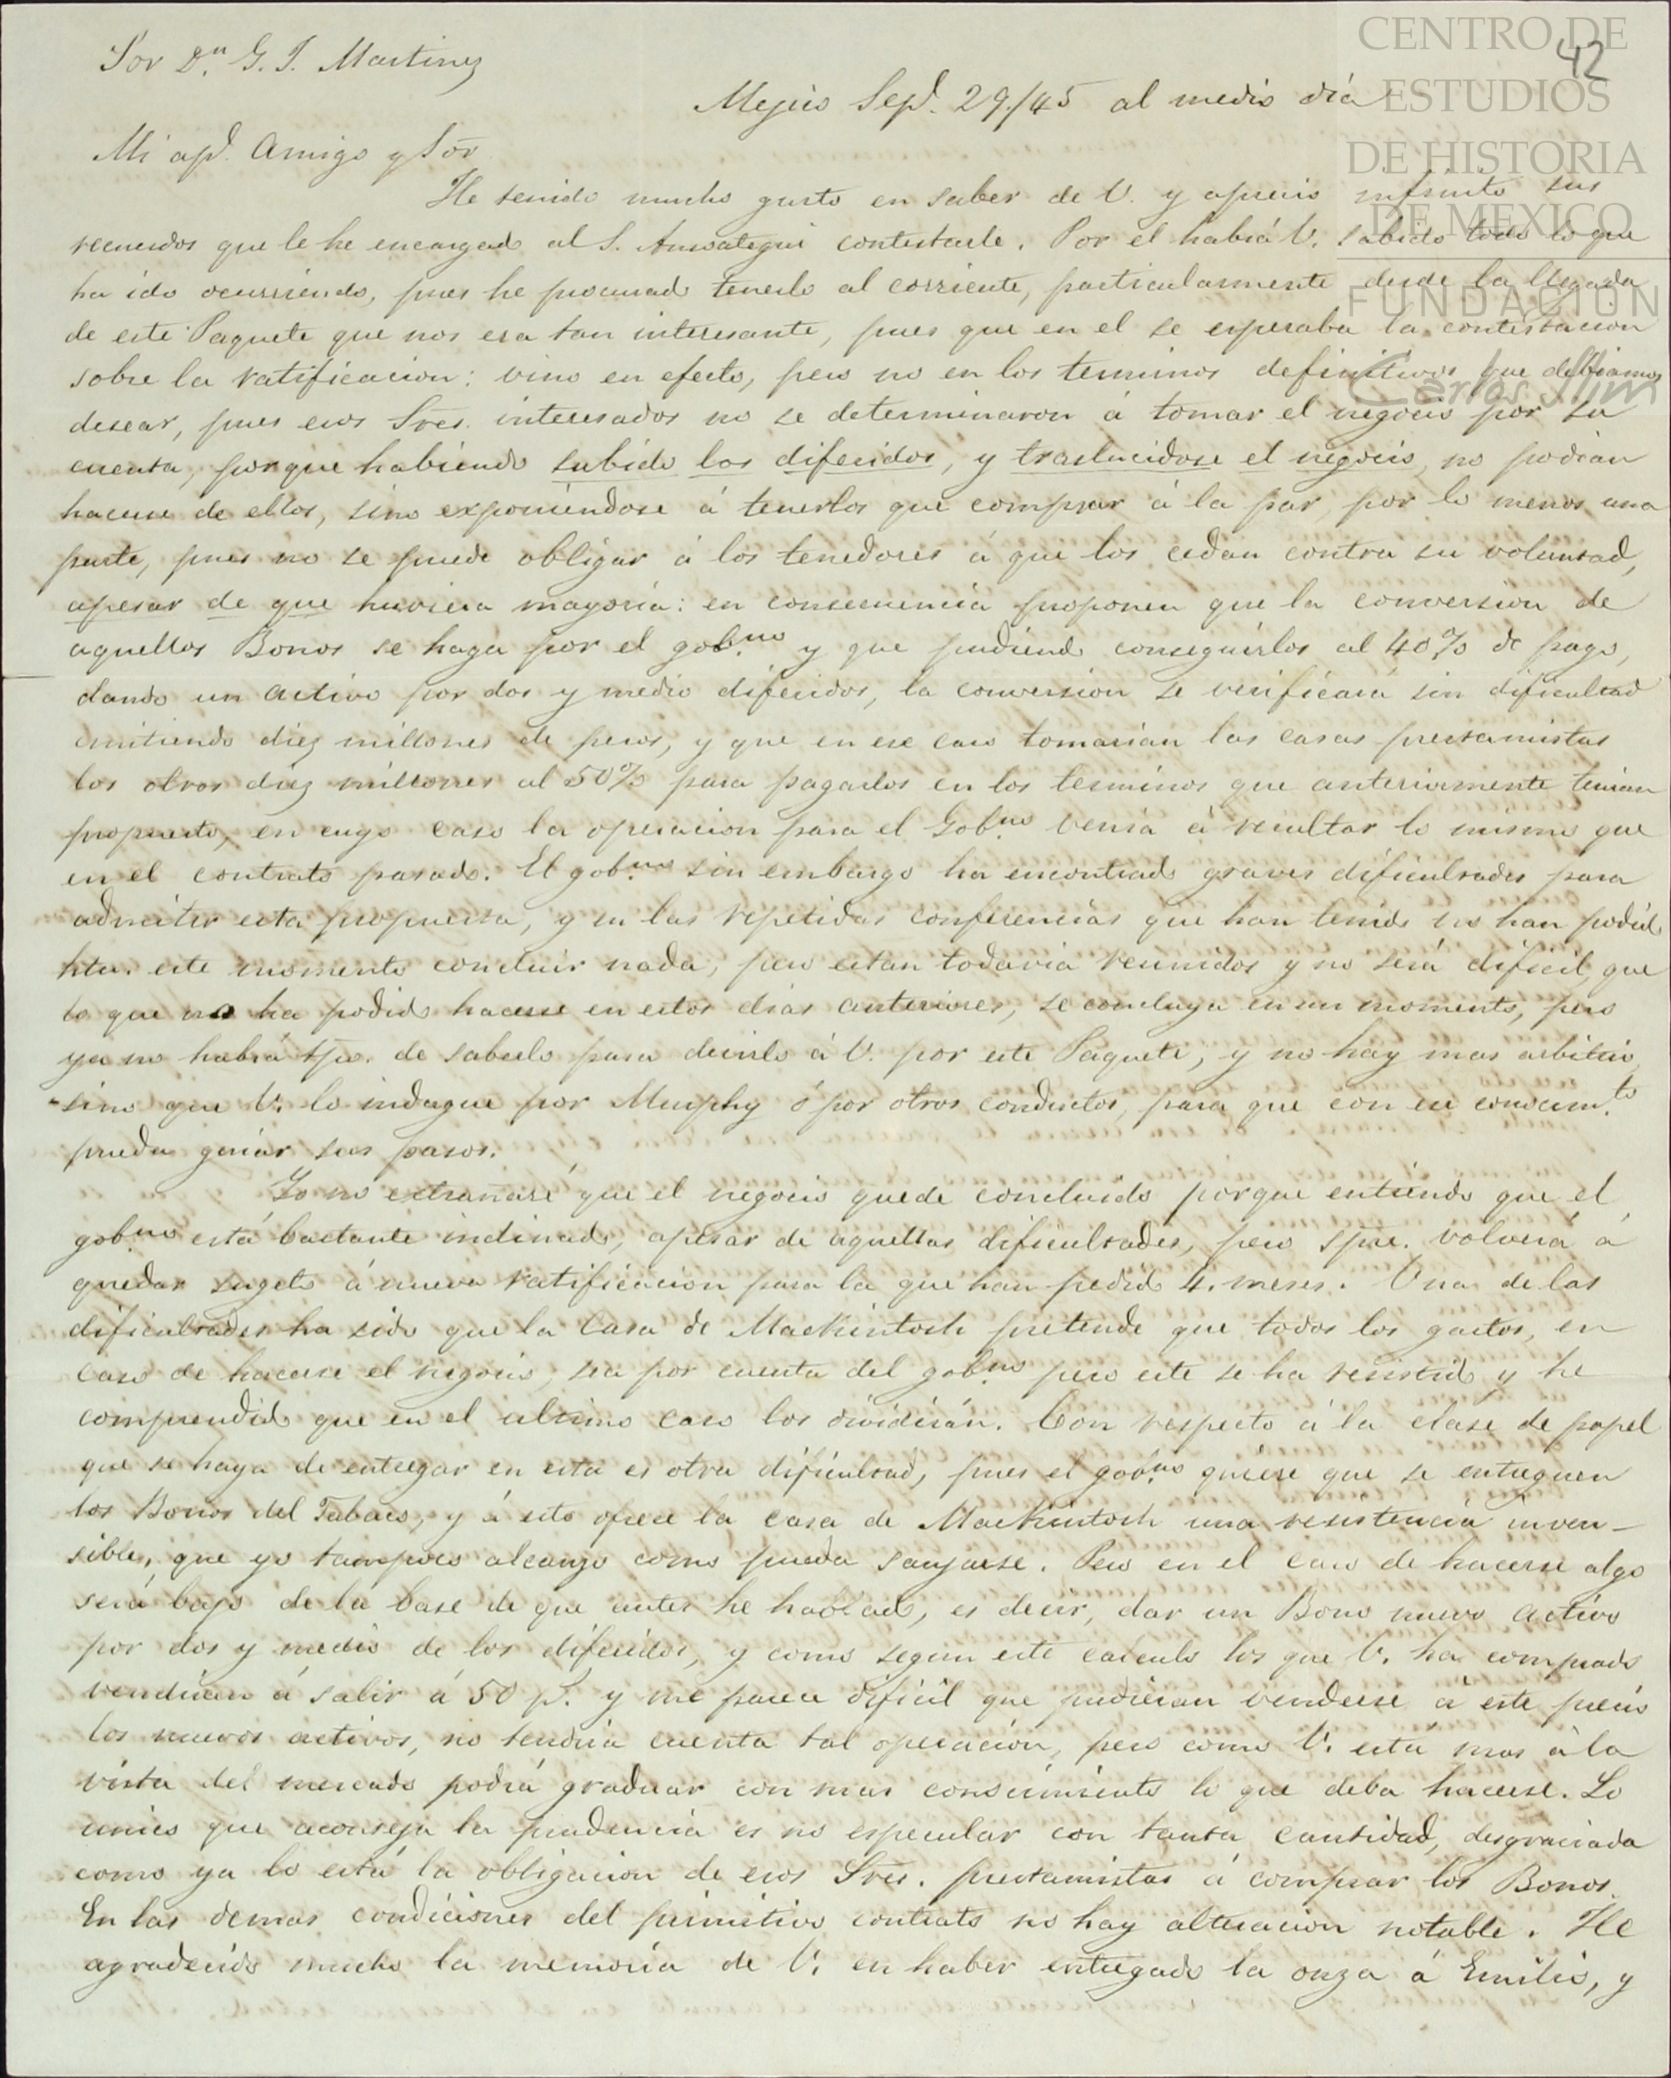 CENTRO DE
ESTUDIOS
DE HISTORIA
DE MEXICO
FUNDACIÓN
Carlos Slim
42
Sor Dn. G. J. Martinez
Mejico Sepe. 29/45 al medio dia
Mi apd. Amigo y Sor
He tenido mucho gusto en saber de V. y aprecio infinito sus
recuerdos que le he encargado al S. Anzoategui contestarle. Por el habrá V. sabido todo lo que
ha ido ocurriendo, pues he procurado tenerlo al corriente, particularmente desde la llegada
de este Paquete que nos era tan interesante, pues que en el se esperaba la contestacion
sobre la ratificacion: vino en efecto, pero no en los terminos definitivos que debiamos
desear, pues esos Sres. interesados no se determinaron á tomar el negocio por su
cuenta, porque habiendo subido los diferidos, y traslucidose el negocio, no podian
hacerse de ellos, sino exponiendose á tenerlos que comprar á la par, por lo menos una
parte, pues no se puede obligar á los tenedores á que los cedan contra su voluntad,
apesar de que huviera mayoria: en consecuencia proponen que la conversion de
aquellos Bonos se haga por el gobno. y que pudiendo conseguirlos al 40% de pago,
dando un activo por dos y medio diferidos, la conversion se verificará sin dificultad
emitiendo diez millones de pesos, y que en ese caso tomarian las casas prestamistas
los otros diez millones al 50% para pagarlos en los terminos que anteriormente tenian
propuesto, en cuyo caso la operacion para el Gobno. venia á resultar lo mismo que
en el contrato pasado. El gobno. sin embargo ha encontrado graves dificultades para
admitir esta propuesta, y en las repetidas conferencias que han tenido no han podido
hta. este momento concluir nada, pero estan todavia reunidos y no será dificil, que
lo que no ha podido hacerse en estos dias anteriores, se concluya en un momento, pero
ya no habrá tpo. de saberlo para decirlo á V. por este Paquete, y no hay mas arbitrio
sino que V. lo indague por Murphy ó por otros conductos, para que con su conocimto.
pueda guiar sus pasos.
Yo no extrañaré que el negocio quede concluido porque entiendo que el
gobno. está bastante inclinado, apesar de aquellas dificultades, pero spre. volverá á
quedar sugeto á nueva ratificacion para la que han pedido 4. meses. Una de las
dificultades ha sido que la Casa de Mackintosh pretende que todos los gastos, en
caso de hacerse el negocio, sea por cuenta del gobno. pero este se ha resistido y he
comprendido que en el ultimo caso los dividirán. Con respecto á la clase de papel
que se haya de entregar en esta es otra dificultad, pues el gobno. quiere que se entreguen
los Bonos del Tabaco, y á esto ofrece la casa de Mackintosh una resistencia inven-
sible, que yo tampoco alcanzo como pueda sanjarse. Pero en el caso de hacerse algo
será bajo de la base de que antes he hablado, es decir, dar un Bono nuevo activo
por dos y medio de los diferidos, y como segun este calculo los que V. ha comprado
vendrian á salir á 50 p. y me parece dificil que pudieran venderse á este precio
los nuevos activos, no tendria cuenta tal operacion, pero como V. está mas á la
vista del mercado podrá graduar con mas conocimiento lo que deba hacerse. Lo
unico que aconseja la prudencia es no especular con tanta cantidad, desgraciada
como ya lo está la obligacion de esos Sres. prestamistas á comprar los Bonos.
En las demas condiciones del primitivo contrato no hay alteracion notable. He
agradecido mucho la memoria de V. en haber entregado la onza á Emilio, y